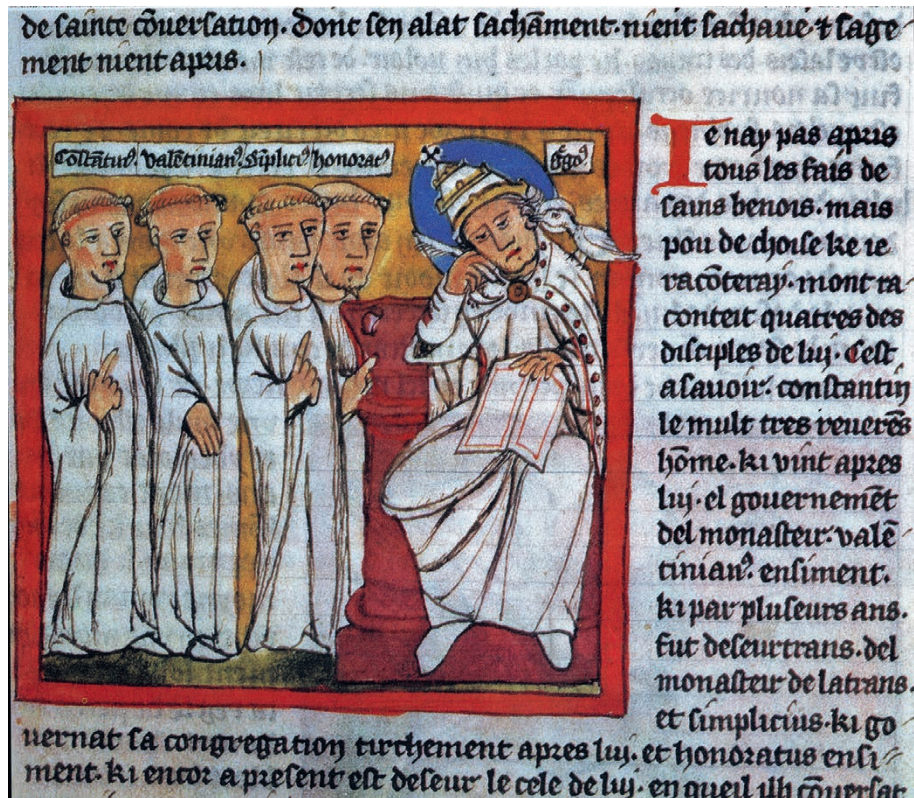 de sainte cōuersation. Dont sen alat sachāment. nient sachaue ⁊ sage
ment nient apris.
Costātinꝰ. Valētinianꝰ. Sīpliciꝰ. honoratꝰ
Ggoꝰ
Ie nay pas apris
tous les fais de
sains benois. mais
pou de choise ke ie
racōteray. mont ra
conteit quatres des
disciples de luj. Cest
asauoir. constantin
le mult tres reuerēs
hōme. ki vint apres
luj. el gouernemēt
del monasteir. valē
tinianꝰ. ensiment.
ki par pluseurs ans.
fut deseurtrans. del
monasteir de latrans.
et simplicius. ki go
uernat sa congregation tirchement apres luj. et honoratus ensi
ment. ki encor a present est deseur le cele de luj. en queil ilh cōuersat